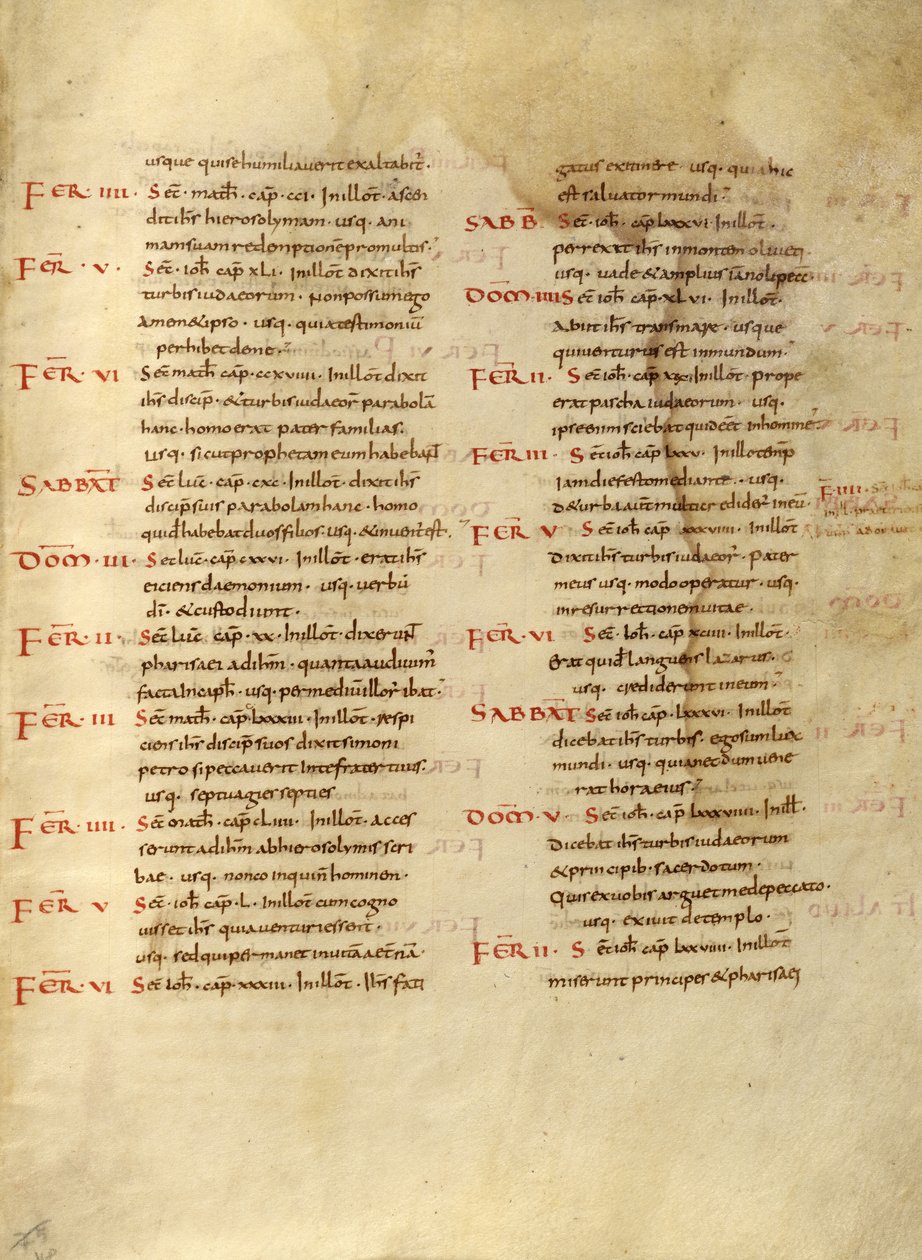 usque qui se humiliaverit exaltabit̄.
FER̄ · IIII · Sec̄ · math̄ · cap̄ · cci · In illōt · Ascen
dit ihs̄ hierosolymam · usq · ani
mam suam redemptionē pro multis.
FER̄ · V · Sec̄ · ioh̄ cap̄ xLi · In illōt dixit ihs̄
turbis iudaeorum · Non possum ego
Amen & ipso · usq · quia testimoniū
perhibet de me.
FĒR · VI Sec̄ math̄ cap̄ · ccxviiii · In illōt dixit
ihs̄ discip̄ · & turbis iudaeor̄ parabolā
hanc · homo erat pater familias.
usq · sicut prophetam eum habebant
SABBAT̄ Sec̄ luc̄ · cap̄ · cxc · In illōt · dixit ihs̄
discip̄ suis parabolam hanc · homo
quid̄ habebat duos filios · usq · & invent̄ est.
DOM̄ · III · Sec luc̄ · cap̄ cxxvi · In illōt · erat ihs̄
eiciens daemonium · usq · verbū
dī · & custodiunt ·
FĒR · II · Sec̄ luc̄ · cap̄ · xx · In illōt · dixerunt
pharisaei ad ihm̄ · quanta audivim̄
facta In caph̄ · usq · per mediū illor̄ ibat
FĒR · III Sec̄ math̄ · cap̄ Lxxxiii · In illōt · respi
ciens ihs̄ discip̄ suos dixit simoni
petro si peccaverit In te frater tuus.
usq · septuagies septies
FĒR · IIII · Sec̄ math̄ · cap̄ cLiiii · In illōt · acces
serunt ad ihm̄ ab hierosolymis scri
bae · usq · non coinquin̄ hominem ·
FĒR V Sec̄ · ioh̄ cap̄ · L · In illōt cum cogno
visset ihs̄ quia venturi essent ·
usq · sed qui permanet in vitā aet̄nā ·
FĒR · VI Sec̄ ioh̄ · cap̄ · xxxiii · In illōt · Ihs̄ fati
gatus ex itinere · usq · quia hic
est salvator mundi
SABB̄ · Sec̄ · ioh̄ · cap̄ Lxxxvi · In illōt ·
perrexit ihs̄ in montem oliveti
usq · vade & amplius iā noli pecc̄
DOM̄ · IIII Sec̄ ioh̄ · cap̄ xLvi · In illōt ·
Abiit ihs̄ trans mare · usque
qui venturus est in mundum ·
FĒR II · Sec̄ ioh̄ · cap̄ In illōt · Prope
erat pascha iudaeorum · usq ·
ipse enim sciebat quid eēt in homine
FĒR III · Sec̄ ioh̄ cap̄ Lxxv · In illo temp̄
Iam die festo mediante · usq ·
De turba aut̄ multi credider̄ in eū ·
FĒR V Sec̄ ioh̄ cap̄ xxxviiii · In illōt
Dixit ihs̄ turbis iudaeor̄ · Pater
meus usq · modo operatur · usq ·
in resurrectionem vitae ·
FĒR · VI Sec̄ · ioh̄ · cap̄ xciii · In illōt ·
Erat quid̄ languens lazarus ·
usq · crediderunt in eum
SABBAT̄ Sec̄ ioh̄ cap̄ · Lxxxvi · In illōt
dicebat ihs̄ turbis · ego sum lux
mundi · usq · quia nec dum vene
rat hora eius.
DOM̄ · V · Sec̄ ioh̄ · cap̄ Lxxxviiii · In ill̄ ·
Dicebat ihs̄ turbis iudaeorum
& principib · sacerdotum ·
Quis ex vobis arguet me de peccato ·
usq · exivit de templo ·
FĒR · II · Sec̄ ioh̄ cap̄ Lxxviiii · In illōt
miserunt principes & pharisaei
F · IIII ·